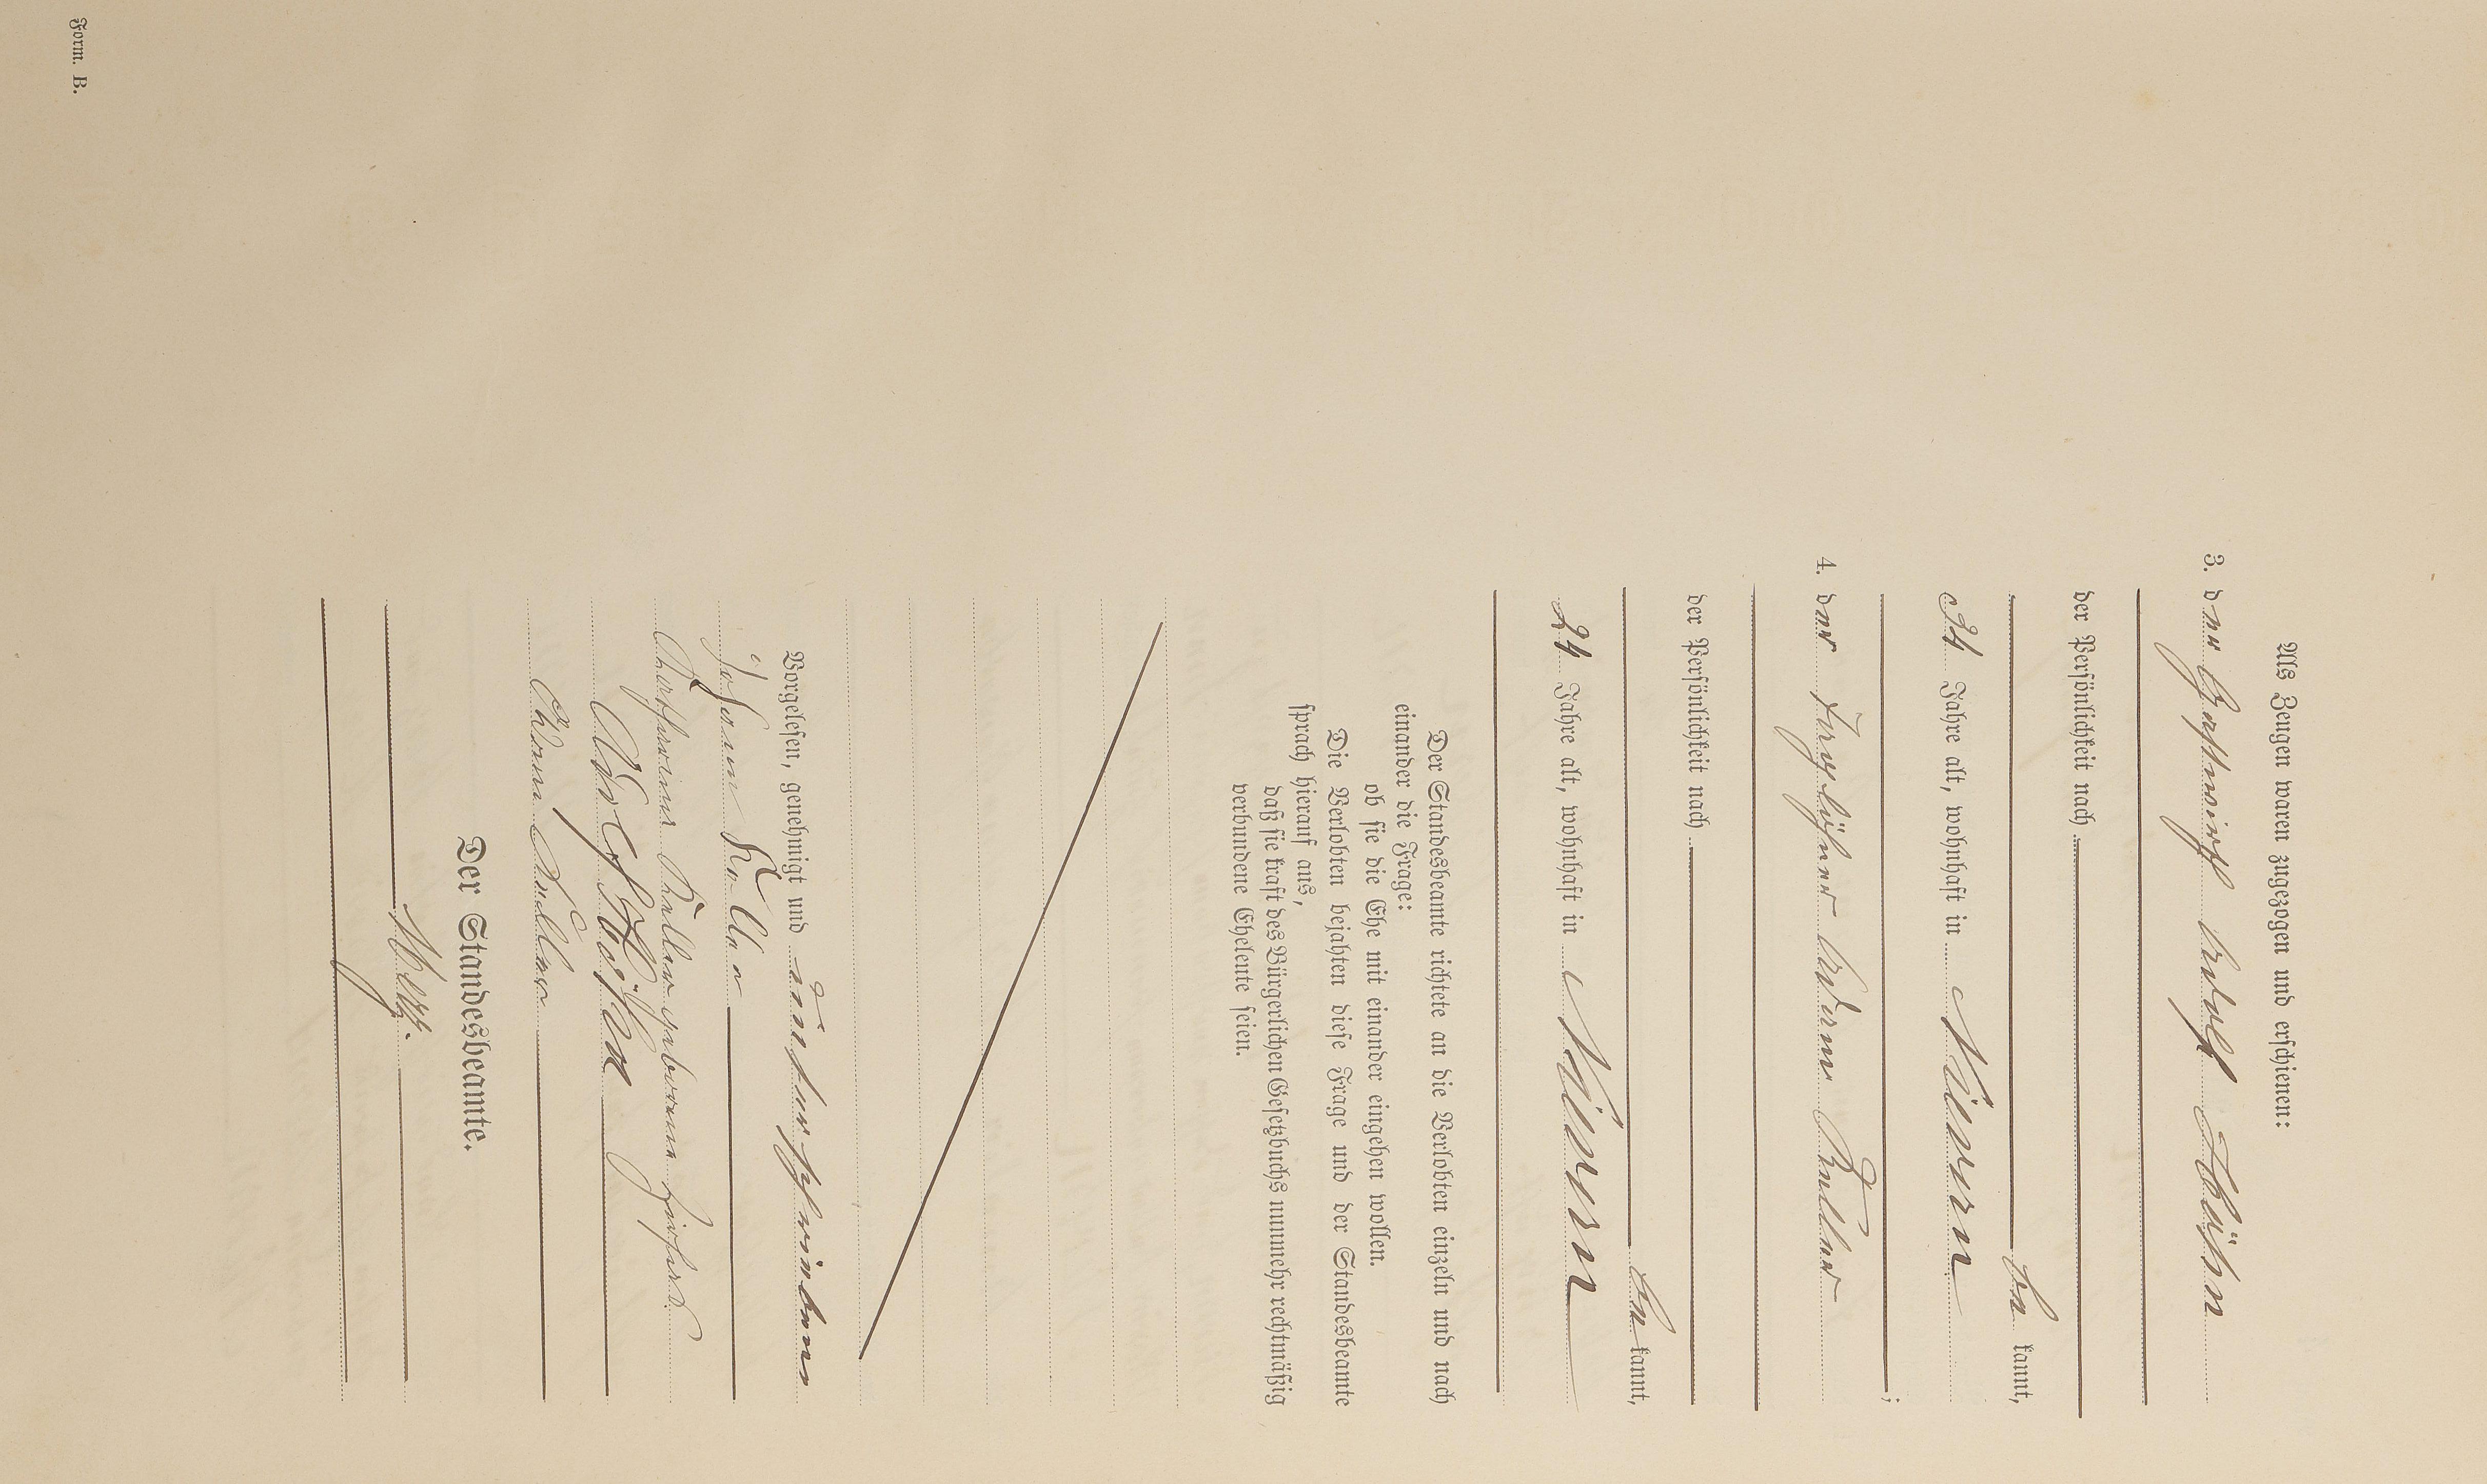 Als Zeugen waren zugezogen und erschienen:
3. der Gastwirth Adolf Höhn
der Persönlichkeit nach
be kannt,
34 Jahre alt, wohnhaft in Nievern
;
4. der Tagelöhner Adam Keller
der Persönlichkeit nach
be kannt,
24 Jahre alt, wohnhaft in Nievern
Der Standesbeamte richtete an die Verlobten einzeln und nach
einander die Frage:
ob sie die Ehe mit einander eingehen wollen.
Die Verlobten bejahten diese Frage und der Standesbeamte
sprach hierauf aus,
daß sie kraft des Bürgerlichen Gesetzbuchs nunmehr rechtmäßig
verbundene Eheleute seien.
Vorgelesen, genehmigt und unterschrieben
Johann Keller
Katharina Keller geborene
Adolf Höhn
Adam Keller
Der Standesbeamte.
Form. B.